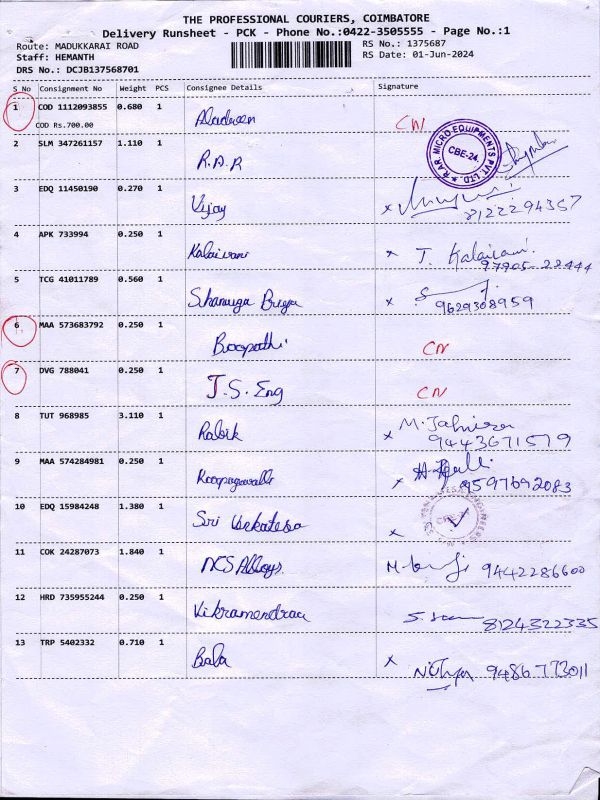 THE PROFESSIONAL COURIERS, COIMBATORE
Delivery Runsheet - PCK - Phone No.:0422-3505555 - Page No.:1
Route: MADUKKARAI ROAD RS No.: 1375687
Staff: HEMANTH RS Date: 01-Jun-2024
DRS No.: DCJB137568701
S No Consignment No Weight PCS Consignee Details Signature
1 COD 1112093855 0.680 1 CN
COD Rs.700.00
2 SLM 347261157 1.110 1 R.A.R R.A.R MICRO EQUIPMENTS PVT. LTD CBE-24.
3 EDQ 11450190 0.270 1 Vijay x 8122294357
4 APK 733994 0.250 1 Kalaivani x T. Kalaivani. 97905-22444
5 TCG 41011789 0.560 1 Shanmuga Priya x 9629308959
6 MAA 573683792 0.250 1 Boopathi CN
7 DVG 788041 0.250 1 J.S. Eng CN
8 TUT 968985 3.110 1 Rabik x 9443671579
9 MAA 574284981 0.250 1 x 9597692083
10 EDQ 15984248 1.380 1 Sri x
11 COK 24287073 1.840 1 NCS Alloys 9442286600
12 HRD 735955244 0.250 1 8124322335
13 TRP 5402332 0.710 1 Bala x 9486773011